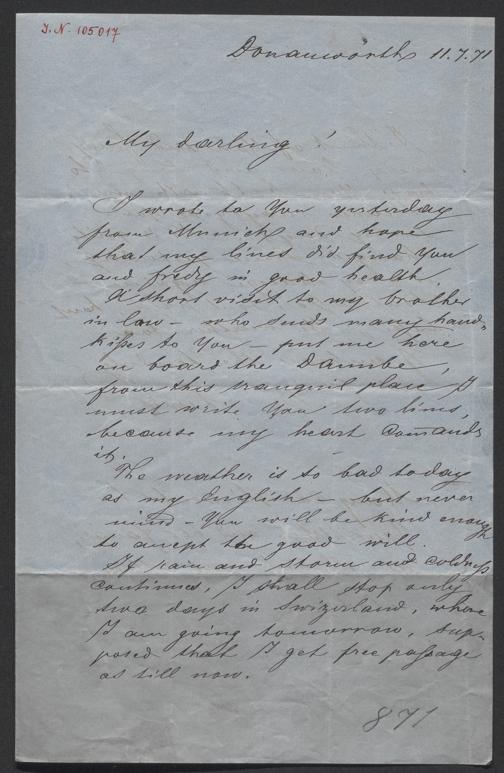 I. N. 105017
Donauwoerth 11.7.71
My darling!
I wrote to You yesterday
from Munich and hope
that my lines did find You
and fredy in good health.
A short visit to my brother
in law – who sends many hand-
kisses to You – put me here
on board the Danube,
from this tranquil place I
must write You two lines,
because my heart comands
it.
The weather is to bad today
as my English – but never
mind – You will be kind enough
to accept the good will.
If rain and storm and coldness
continues, I shall stop only
two days in Swizerland, where
I am going tomorrow, sup-
posed that I get free passage
as till now.
871